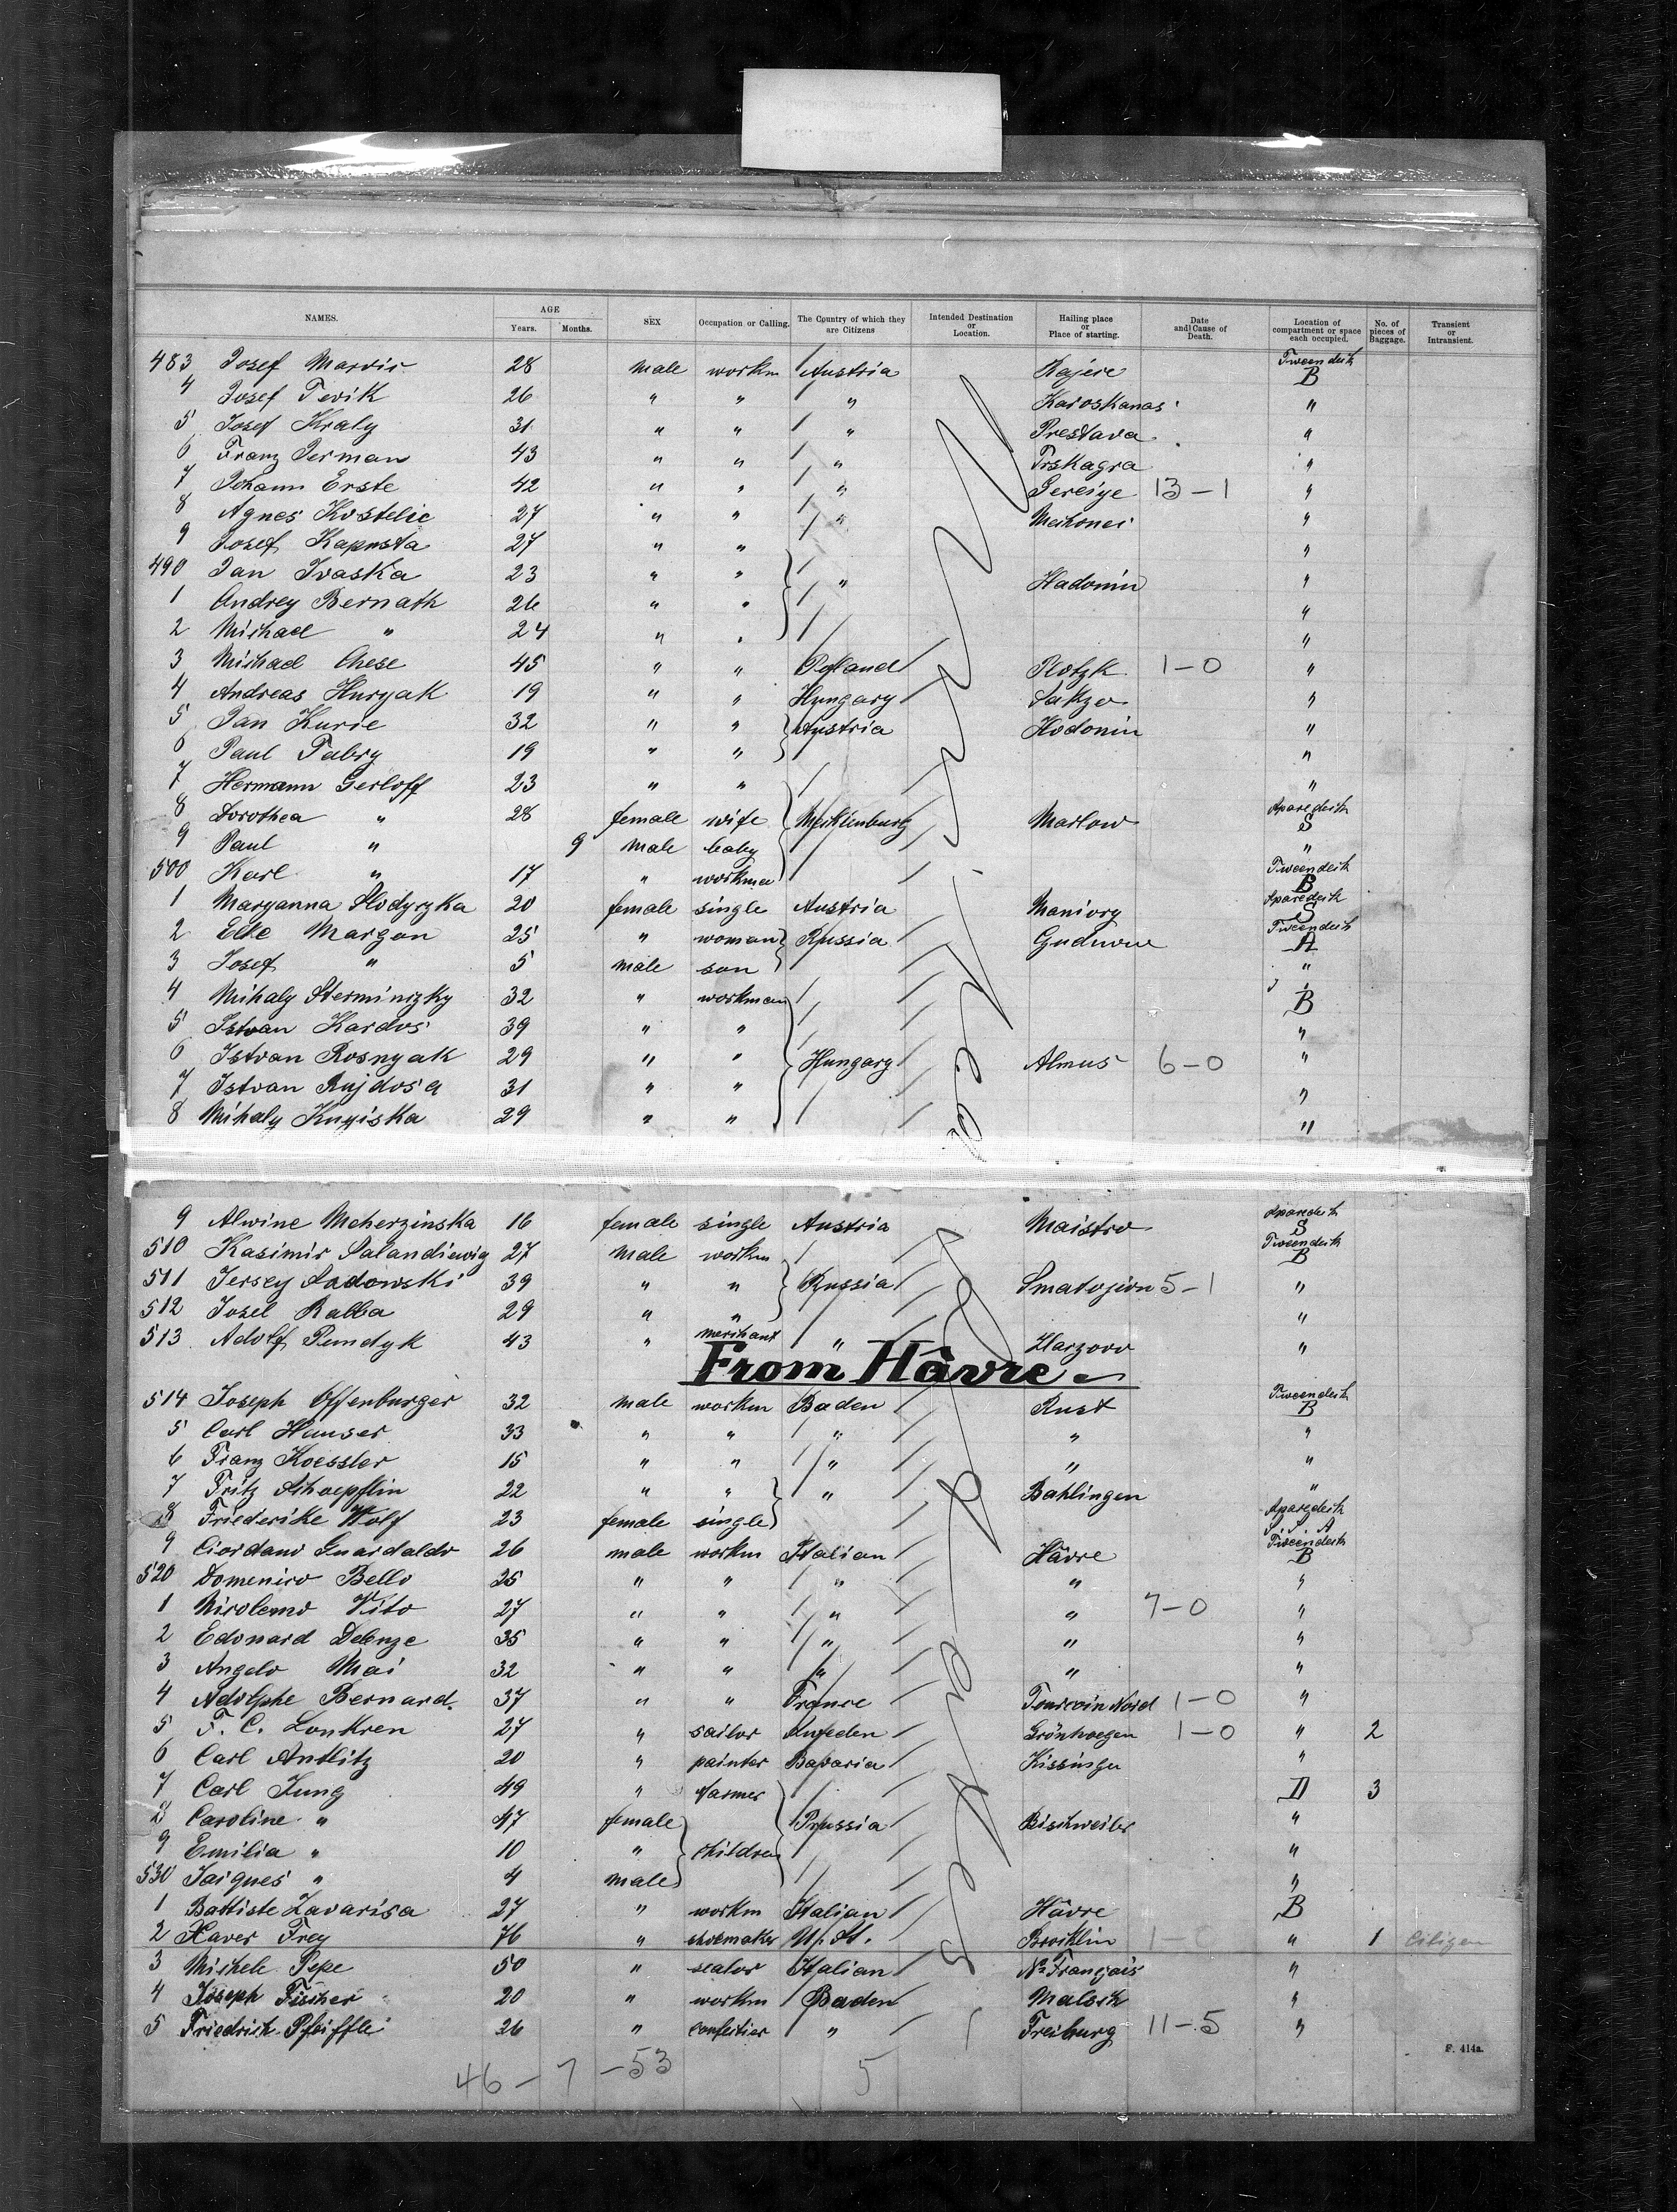 NAMES. AGE Years. Months. SEX Occupation or Calling. The Country of which they are Citizens Intended Destination or Location. Hailing place or Place of starting. Date and Cause of Death. Location of compartment or space each occupied. No. of pieces of Baggage. Transient or Intransient.
483 Josef Mavsic 28 male workm Austria Tweendeck B
4 Josef Tevik 26 " " " Karoskanas "
5 Josef Kraly 31 " " " Prestava "
6 Franz Jerman 43 " " " Trskagra "
7 Johann Erste 42 " " " Sereiye 13-1 "
8 Agnes Kostelic 27 " " " "
9 Josef Kapusta 27 " " "
490 Jan Ivaska 23 " " " Hadonin "
1 Andrey Bernath 26 " " "
2 Michael " 24 " " "
3 Michael Chese 45 " " Poland Plotzk 1-0 "
4 Andreas Huryak 19 " " Hungary Sakzo "
5 Jan Kurre 32 " " Austria Hodonin "
6 Paul Fabry 19 " " "
7 Hermann Gerloff 23 " " "
8 Dorothea " 28 female wife Mecklenburg Marlow Sparedeck S
9 Paul " 9 male baby "
500 Karl " 17 " workma Tweendeck B
1 Maryanna Slodyzka 20 female single Austria Maniory Sparedeck S
2 Elle Margon 25 " woman Russia Tweendeck A
3 Josef " 5 male son "
4 Mihaly Sterminizky 32 " workman " B
5 Istvan Kardos 39 " " "
6 Istvan Rosnyak 29 " " Hungary Almus 6-0 "
7 Istvan Rujdosa 31 " " "
8 Mihaly 29 " " "
9 Alwine Mcherzinska 16 female single Austria Maistro Sparedeck S
510 Kasimir Salandiewig 27 male workm Tweendeck B
511 Jersey Sadowski 39 " " Russia 5-1 "
512 Josel Rabba 29 " " "
513 Adolf Pundyk 43 " merchant " Harzovo "
From Hâvre
514 Joseph Offenburger 32 male workm Baden Rust Tweendeck B
5 Carl Hauser 33 " " " " "
6 Franz Koessler 15 " " " " "
7 Fritz Schoepflin 22 " " " Bahlingen "
8 Friederike Wolf 23 female single Sparedeck S. S. A
9 Giordano Guardaldo 26 male workm Italian Hâvre Tweendeck B
520 Domenico Bello 25 " " " " "
1 Nicolemo Vito 27 " " " " 7-0 "
2 Edouard Delenze 35 " " " " "
3 Angelo Mai 32 " " " " "
4 Adolphe Bernard 37 " " France Tourcoin Nord 1-0 "
5 F. C. Lonkren 27 " sailor Sweden Grönhoegen 1-0 " 2
6 Carl Antlitz 20 " painter Bavaria Kissingen "
7 Carl Jung 49 " farmer D 3
8 Caroline " 47 female Prussia Bischweiler "
9 Emilia " 10 " children "
530 Jacques " 4 male "
1 Battiste Zavarisa 27 " workm Italian Hâvre B
2 Xaver Frey 76 " shoemaker U. St. Brooklin 1-0 " 1 Citizen
3 Michele Pepe 50 " sealor Italian Nr. Français "
4 Joseph Fischer 20 " workm Baden Malsch "
5 Friedrich Pfeiffle 26 " confectier " Freiburg 11-5 "
F. 414a.
46-7-53 5